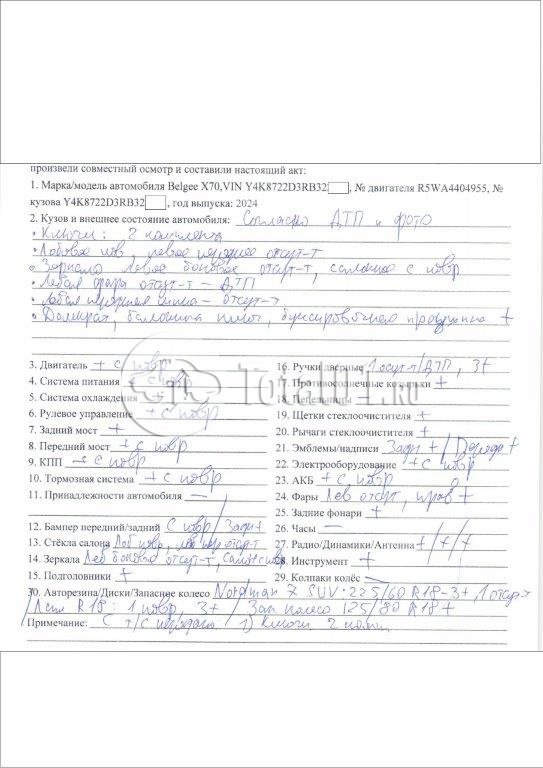 произвели совместный осмотр и составили настоящий акт:
1. Марка/модель автомобиля Belgee X70,VIN Y4K8722D3RB32, № двигателя R5WA4404955, №
кузова Y4K8722D3RB32, год выпуска: 2024
2. Кузов и внешнее состояние автомобиля: Согласно ДТП и фото
• Ключи: 2 комплекта
• Лобовое повр, левое переднее отсут-т
• Зеркало левое боковое отсут-т, салонное с повр
• Левая фара отсут-т - ДТП
• Левая передняя шина - отсут-т
• Домкрат, балонный ключ, буксировочная проушина +
3. Двигатель + с повр
4. Система питания + с повр
5. Система охлаждения +
6. Рулевое управление + с повр
7. Задний мост +
8. Передний мост + с повр
9. КПП + с повр
10. Тормозная система + с повр
11. Принадлежности автомобиля —
12. Бампер передний/задний с повр/ Задн +
13. Стёкла салона Лоб повр, лев пер отсут-т
14. Зеркала Лев боковое отсут-т, салон с повр
15. Подголовники +
16. Ручки дверные 1 отсут-т/ДТП, 3+
17. Противосолнечные козырьки +
18. Пепельницы +
19. Щетки стеклоочистителя +
20. Рычаги стеклоочистителя +
21. Эмблемы/надписи Задн + /
22. Электрооборудование + с повр
23. АКБ + с повр
24. Фары Лев отсут, прав +
25. Задние фонари +
26. Часы —
27. Радио/Динамики/Антенна +/+/+
28. Инструмент +
29. Колпаки колёс —
30. Авторезина/Диски/Запасное колесо Nordman 7 SUV: 225/60 R18 - 3+, 1 отсут-т
/ R18: 1 повр, 3+ / Зап колесо 125/80 R18 +
Примечание: С т/с передано 1) Ключи 2 компл
TOTAL01.RU